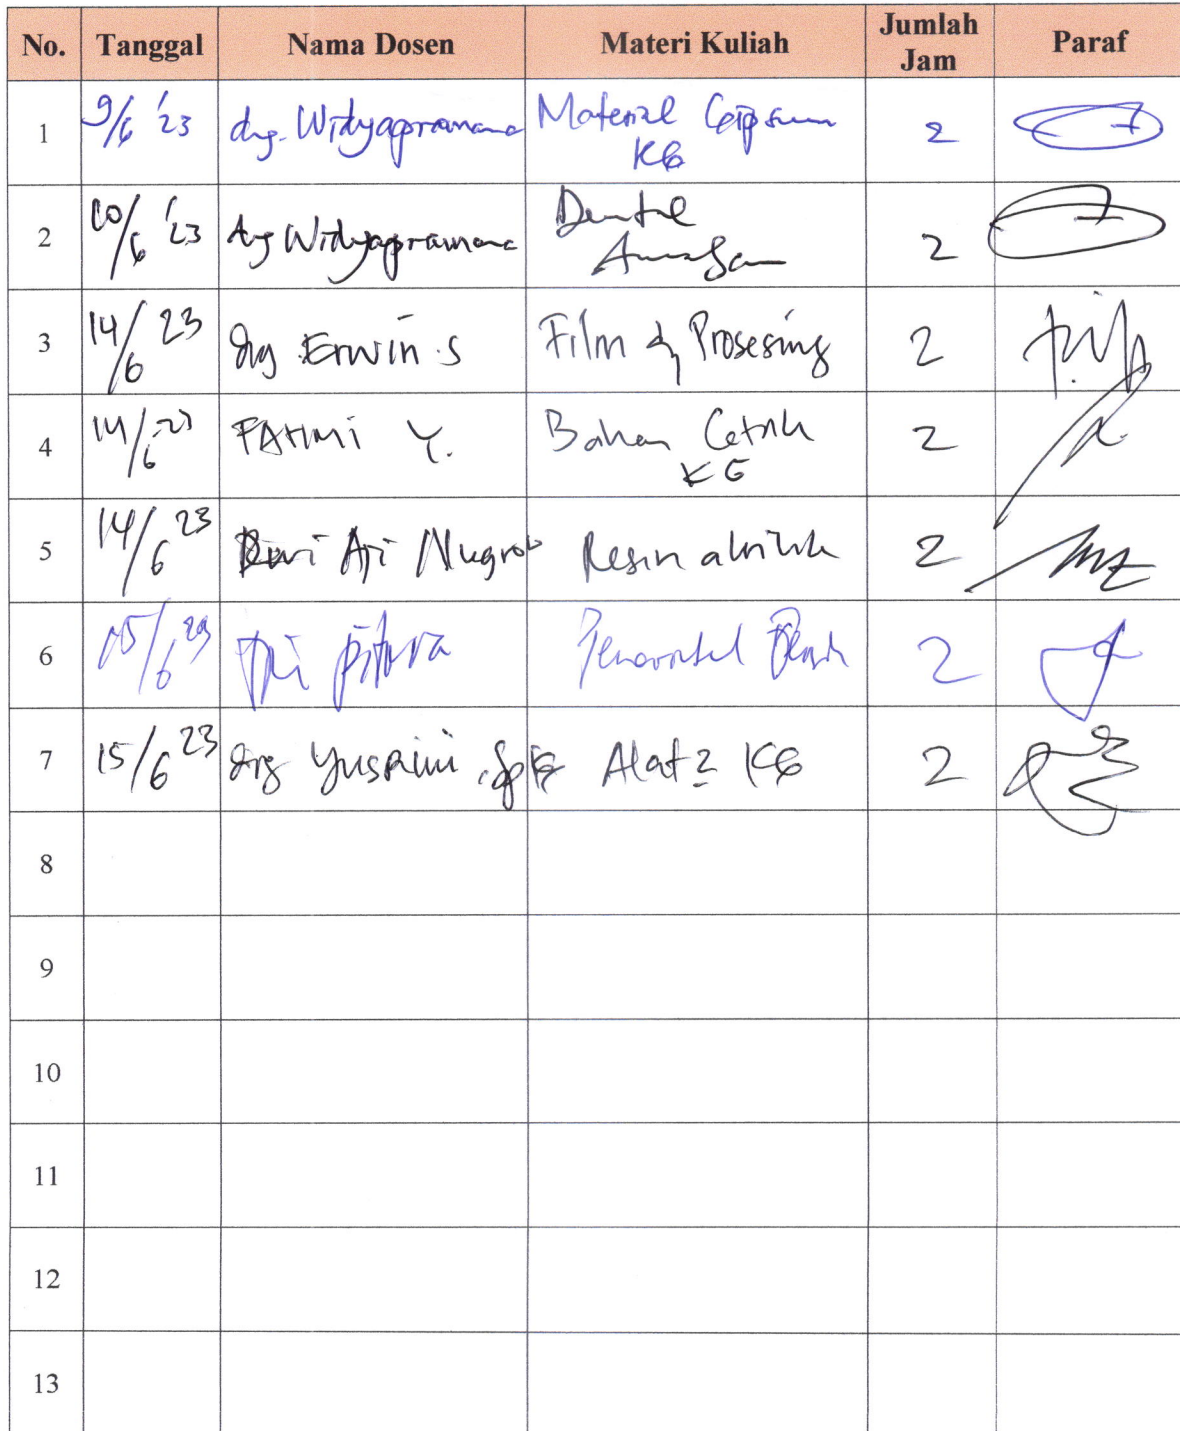 No. Tanggal Nama Dosen Materi Kuliah Jumlah Jam Paraf
1 9/6 '23 drg. Widyapramana Material Gipsum KG 2
2 10/6 '23 drg Widyapramana Dental 2
3 14/6 23 drg Erwin S Film & Prosesing 2
4 14/6-23 FAHMI Y. Bahan Cetak KG 2
5 14/6 23 Dwi Aji Nugroho Resin akrilik 2
6 15/6 23 2
7 15/6 23 drg Yusrini, SpKG Alat2 KG 2
8
9
10
11
12
13